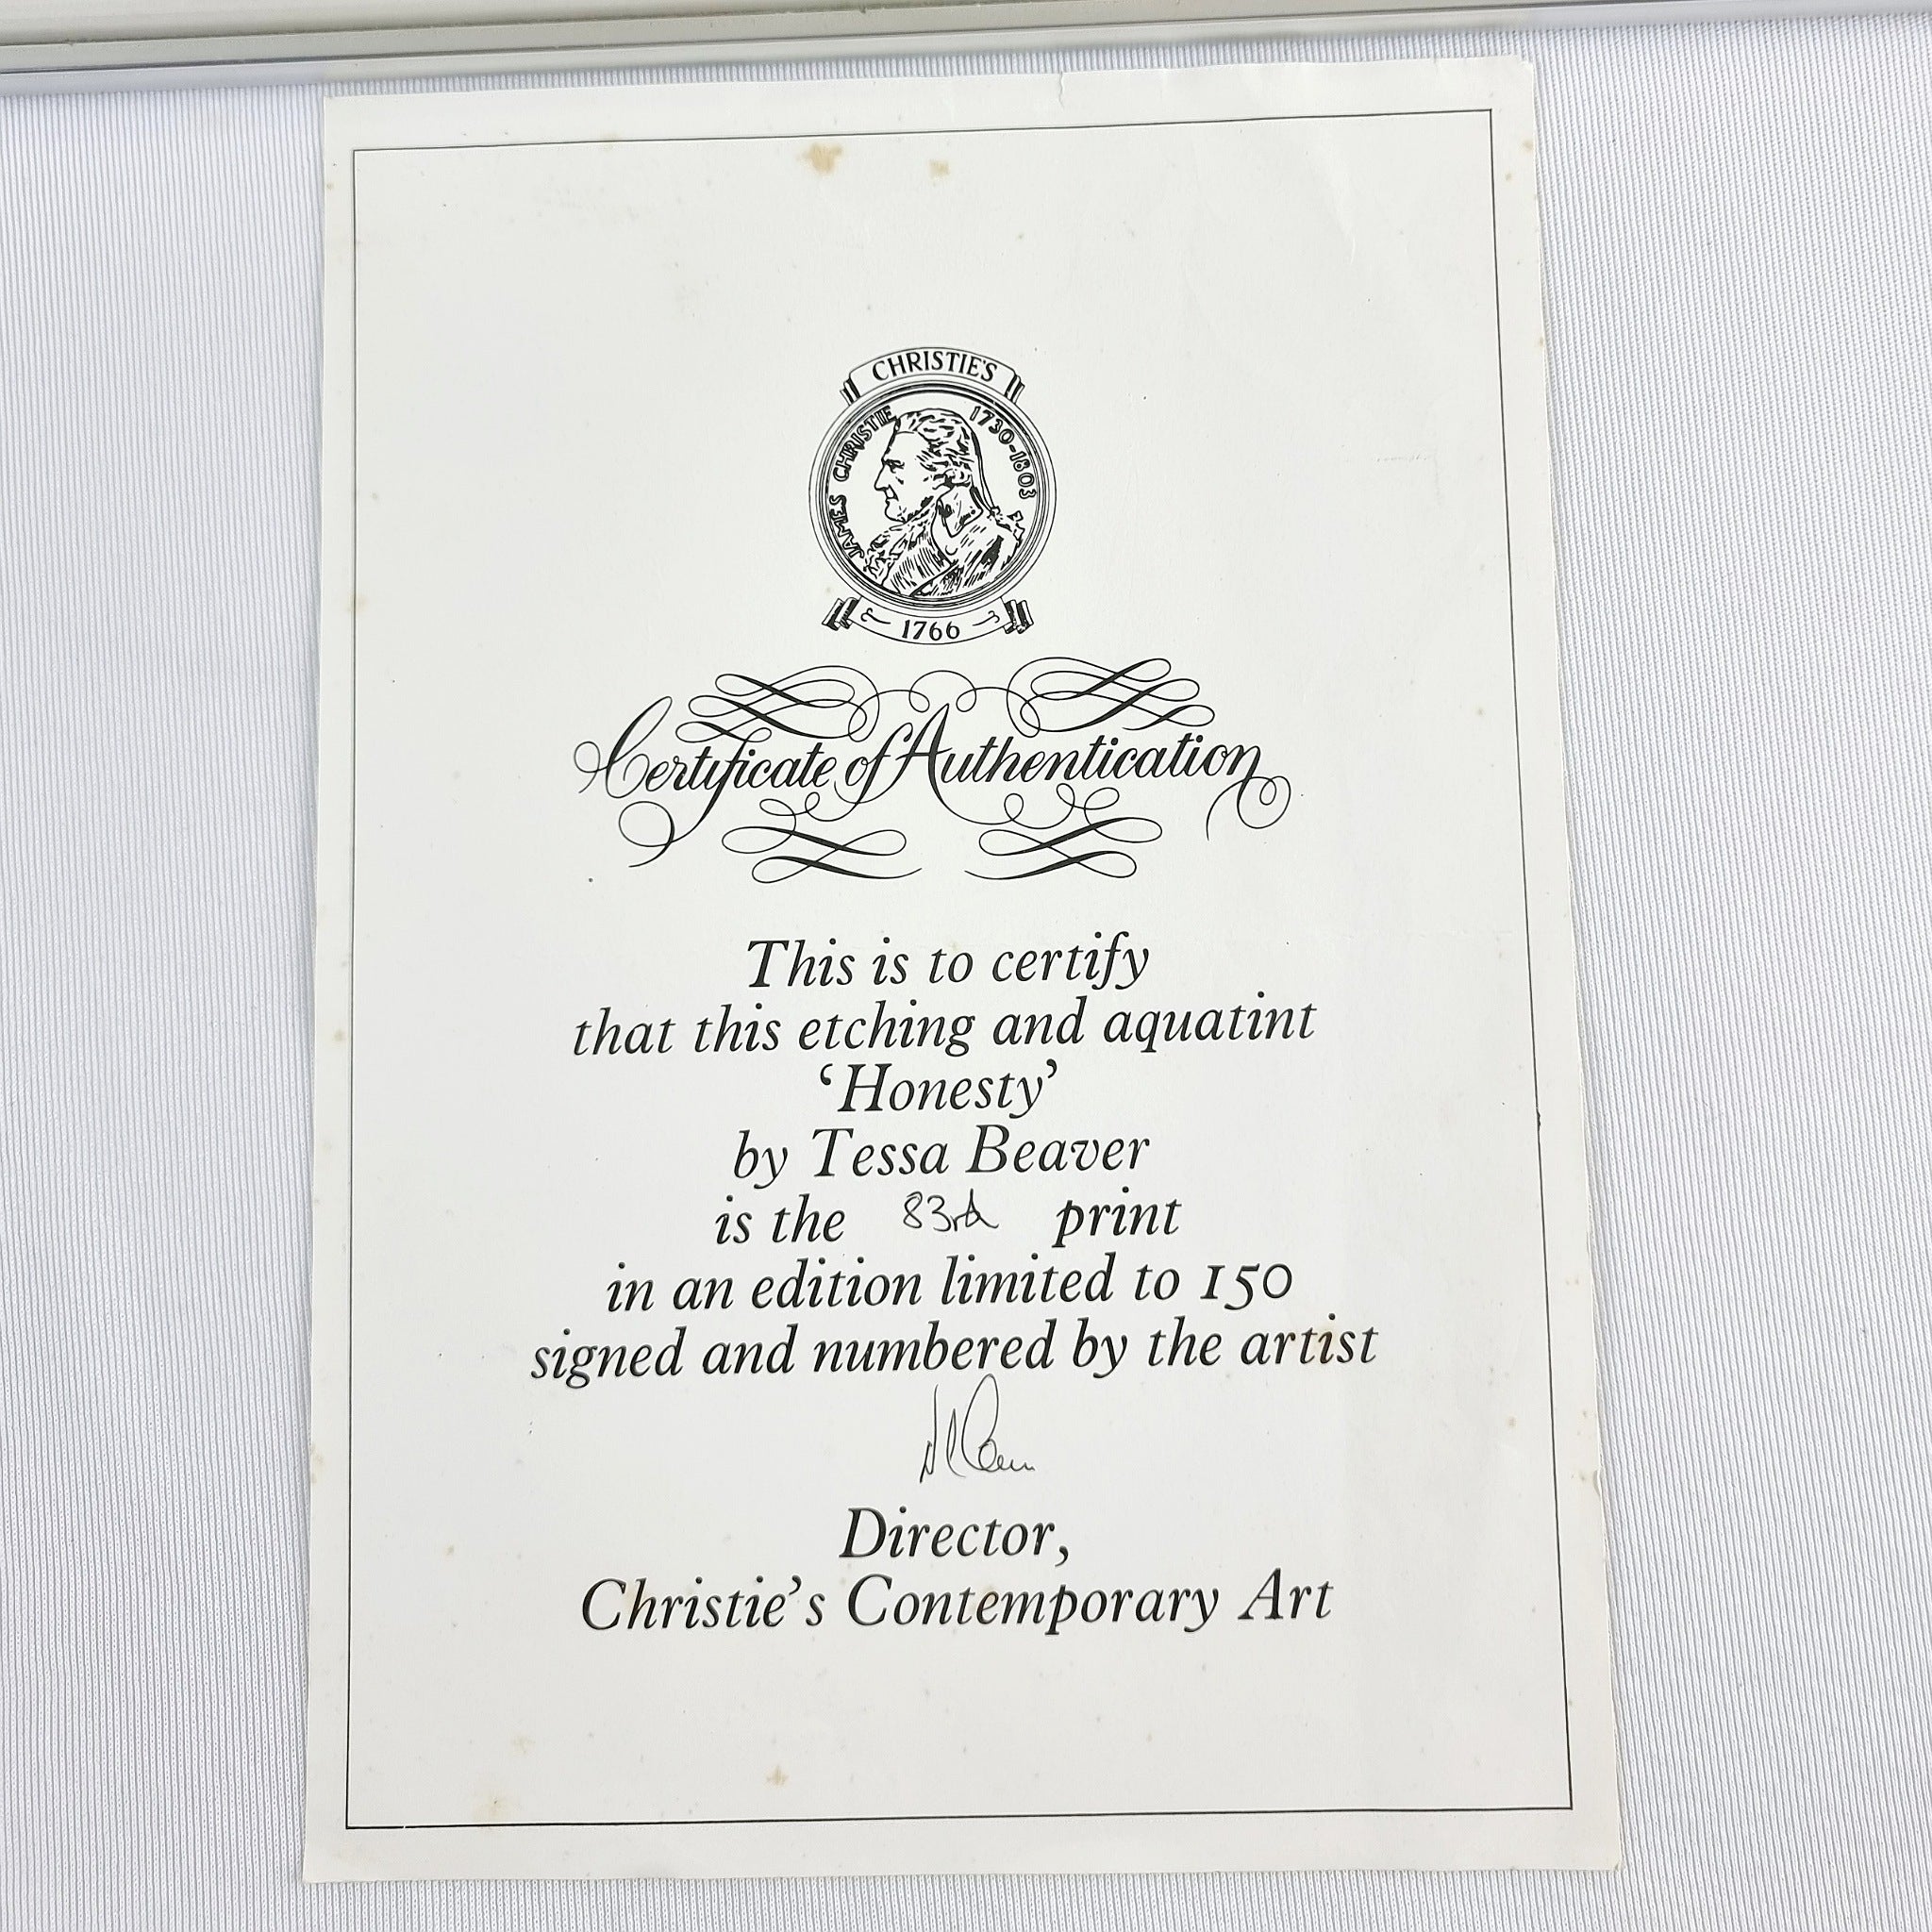 CHRISTIE'S
JAMES CHRISTIE 1730-1803
1766
Certificate of Authentication
This is to certify
that this etching and aquatint
‘Honesty’
by Tessa Beaver
is the 83rd print
in an edition limited to 150
signed and numbered by the artist
Director,
Christie’s Contemporary Art